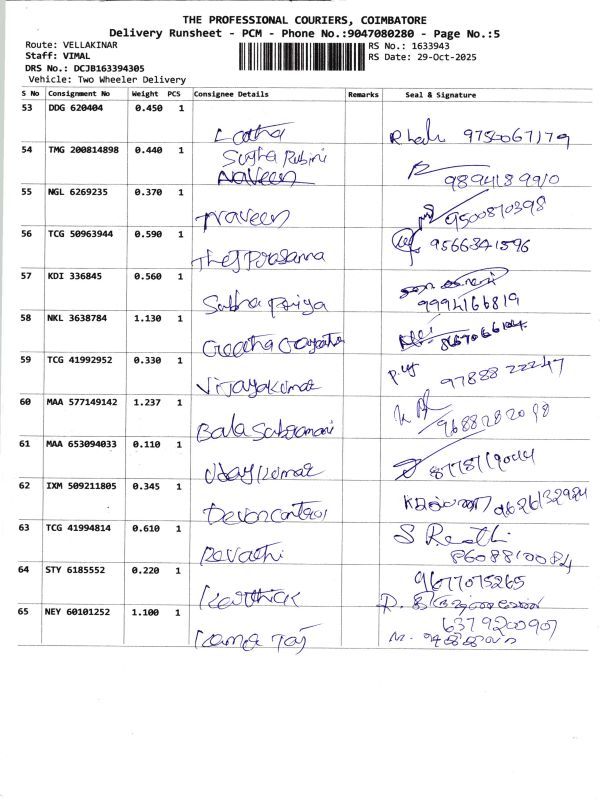 THE PROFESSIONAL COURIERS, COIMBATORE
Delivery Runsheet - PCM - Phone No.:9047080280 - Page No.:5
Route: VELLAKINAR
RS No.: 1633943
Staff: VIMAL
RS Date: 29-Oct-2025
DRS No.: DCJB163394305
Vehicle: Two Wheeler Delivery
S No Consignment No Weight PCS Consignee Details Remarks Seal & Signature
53 DDG 620404 0.450 1
Latha 9750067179
54 TMG 200814898 0.440 1
Sugha Rubini
Naveen 9894189910
55 NGL 6269235 0.370 1
Naveen 9500870398
56 TCG 50963944 0.590 1
9566341596
57 KDI 336845 0.560 1
Subha Priya 9994166819
58 NKL 3638784 1.130 1
59 TCG 41992952 0.330 1
Vijayakumar 9788822247
60 MAA 577149142 1.237 1
Bala 9688282098
61 MAA 653094033 0.110 1
Uday Kumar
62 IXM 509211805 0.345 1
63 TCG 41994814 0.610 1
Revathi 8608810084
64 STY 6185552 0.220 1
9677075265
Karthick
65 NEY 60101252 1.100 1
6379200907
Kama Raj